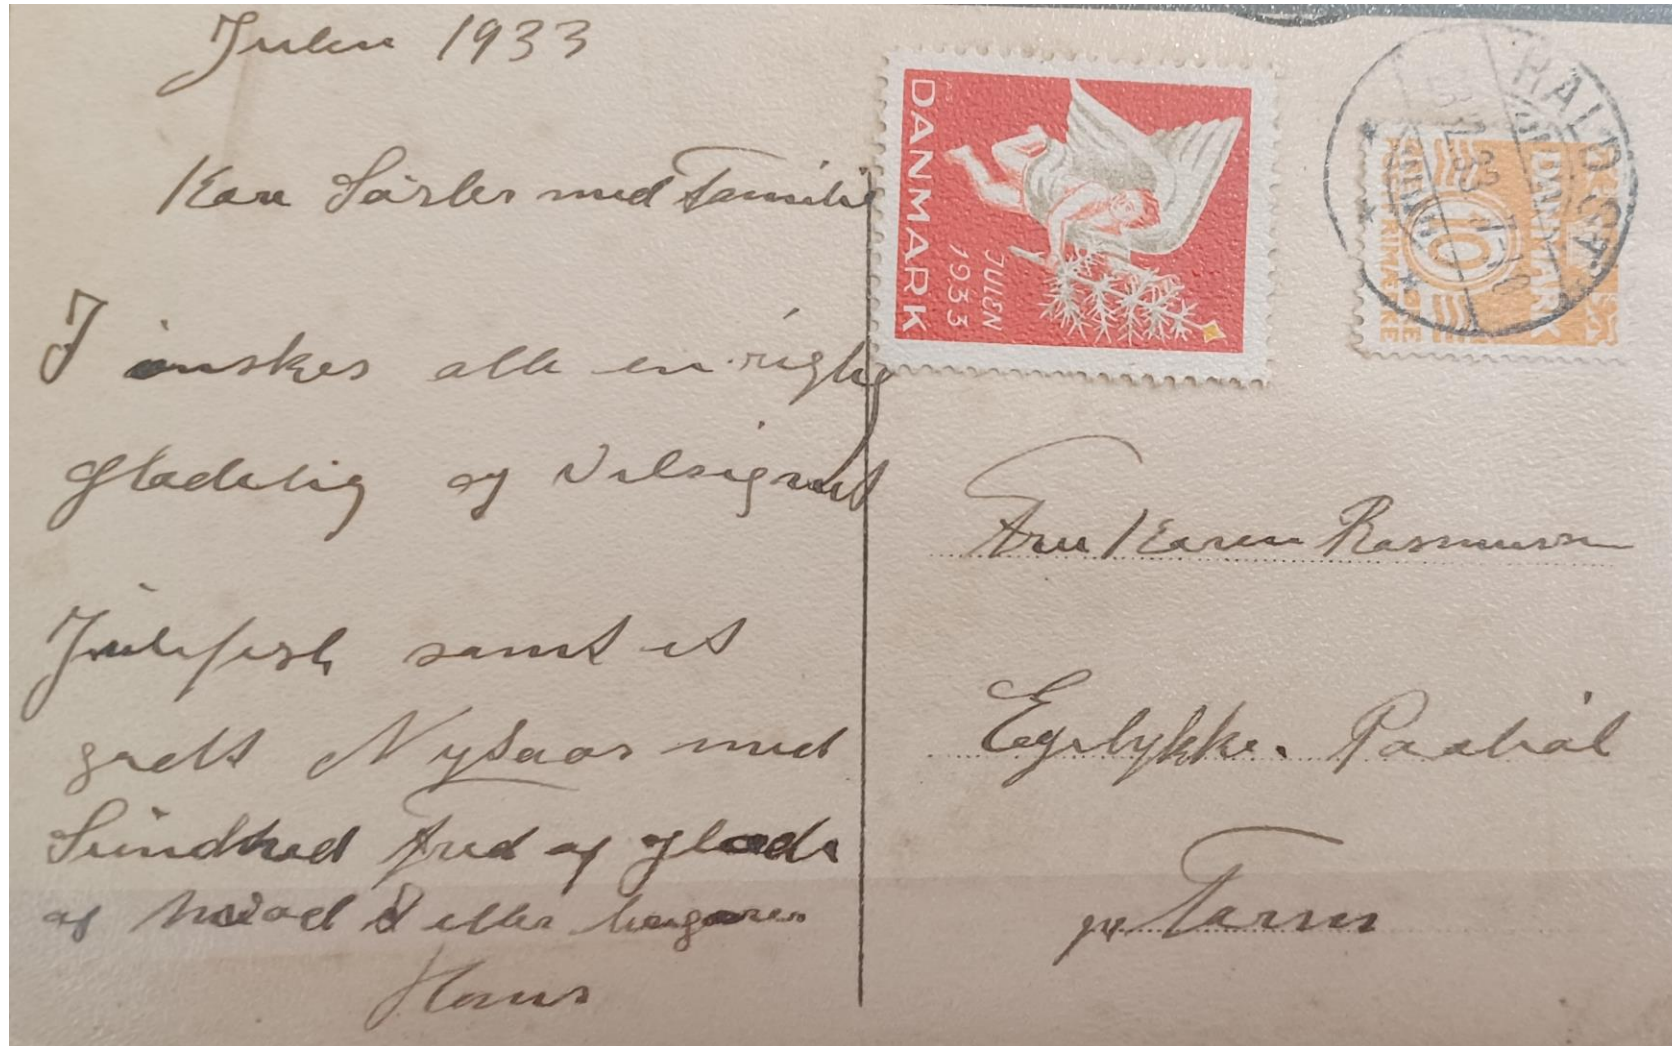 Julen 1933
Kære Søster med Familie
I ønskes alle en rigtig
glædelig og Velsignet
Julefest samt et
godt Nytaar med
Sundhed Fred og Glæde
og hvad I eller
Hans
DANMARK
JULEN
1933
HALD ST.
DANMARK
10
Fru Karen Rasmussen
Egelykke. Paabøl
pr Tarm